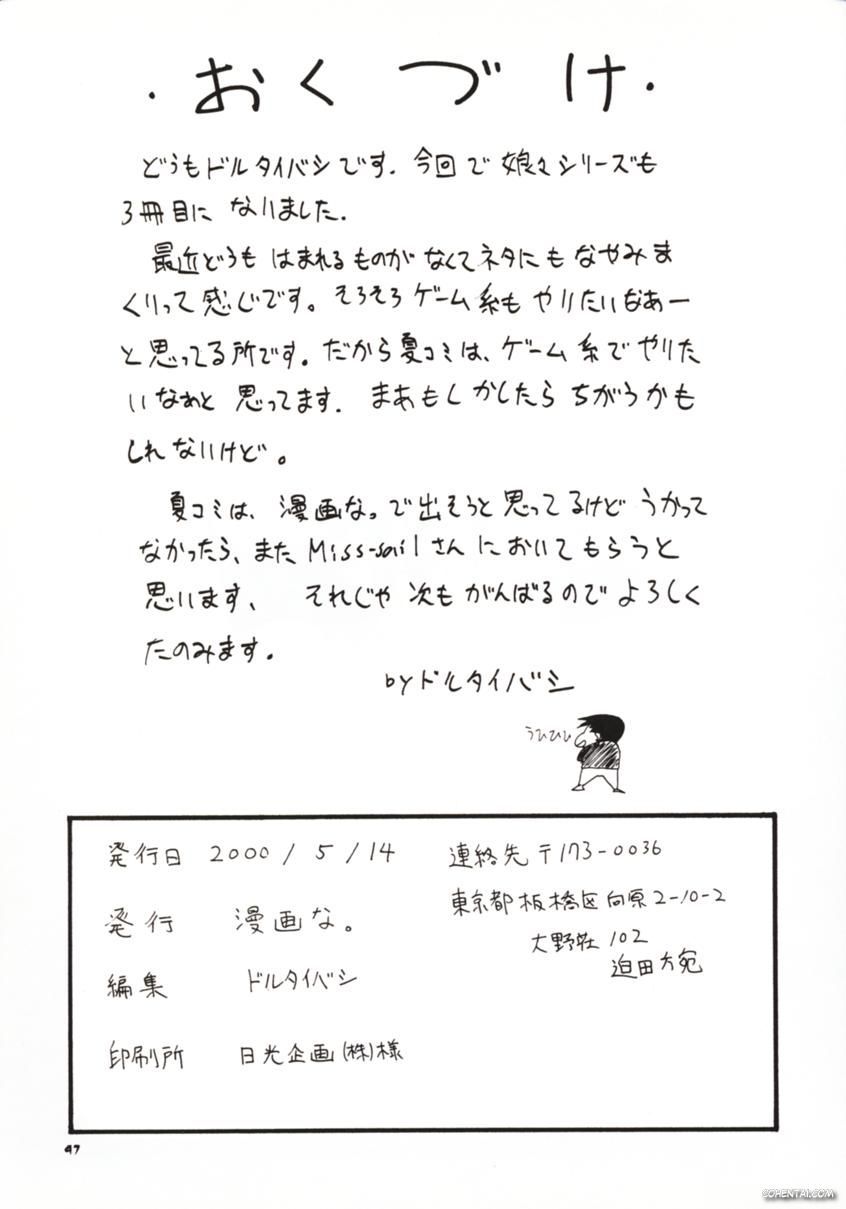 ・おくづけ・
どうもドルタイバシです. 今回で娘々シリーズも
3冊目になりました.
最近どうもはまれるものがなくてネタにもなやみま
くりって感じです。そろそろゲーム系もやりたいなあー
と思ってる所です。だから夏コミは、ゲーム系でやりた
いなぁと思ってます. まあもしかしたらちがうかも
しれないけど。
夏コミは、漫画な。で出そうと思ってるけどうかって
なかったら、またMiss-sailさんにおいてもらうと
思います、 それじゃ次もがんばるのでよろしく
たのみます。
byドルタイバシ
うひひひ
発行日 2000/5/14
発行 漫画な。
編集 ドルタイバシ
印刷所 日光企画(株)様
連絡先 〒173-0036
東京都板橋区向原2-10-2
大野荘102
迫田方宛
47
COHENTAI.COM